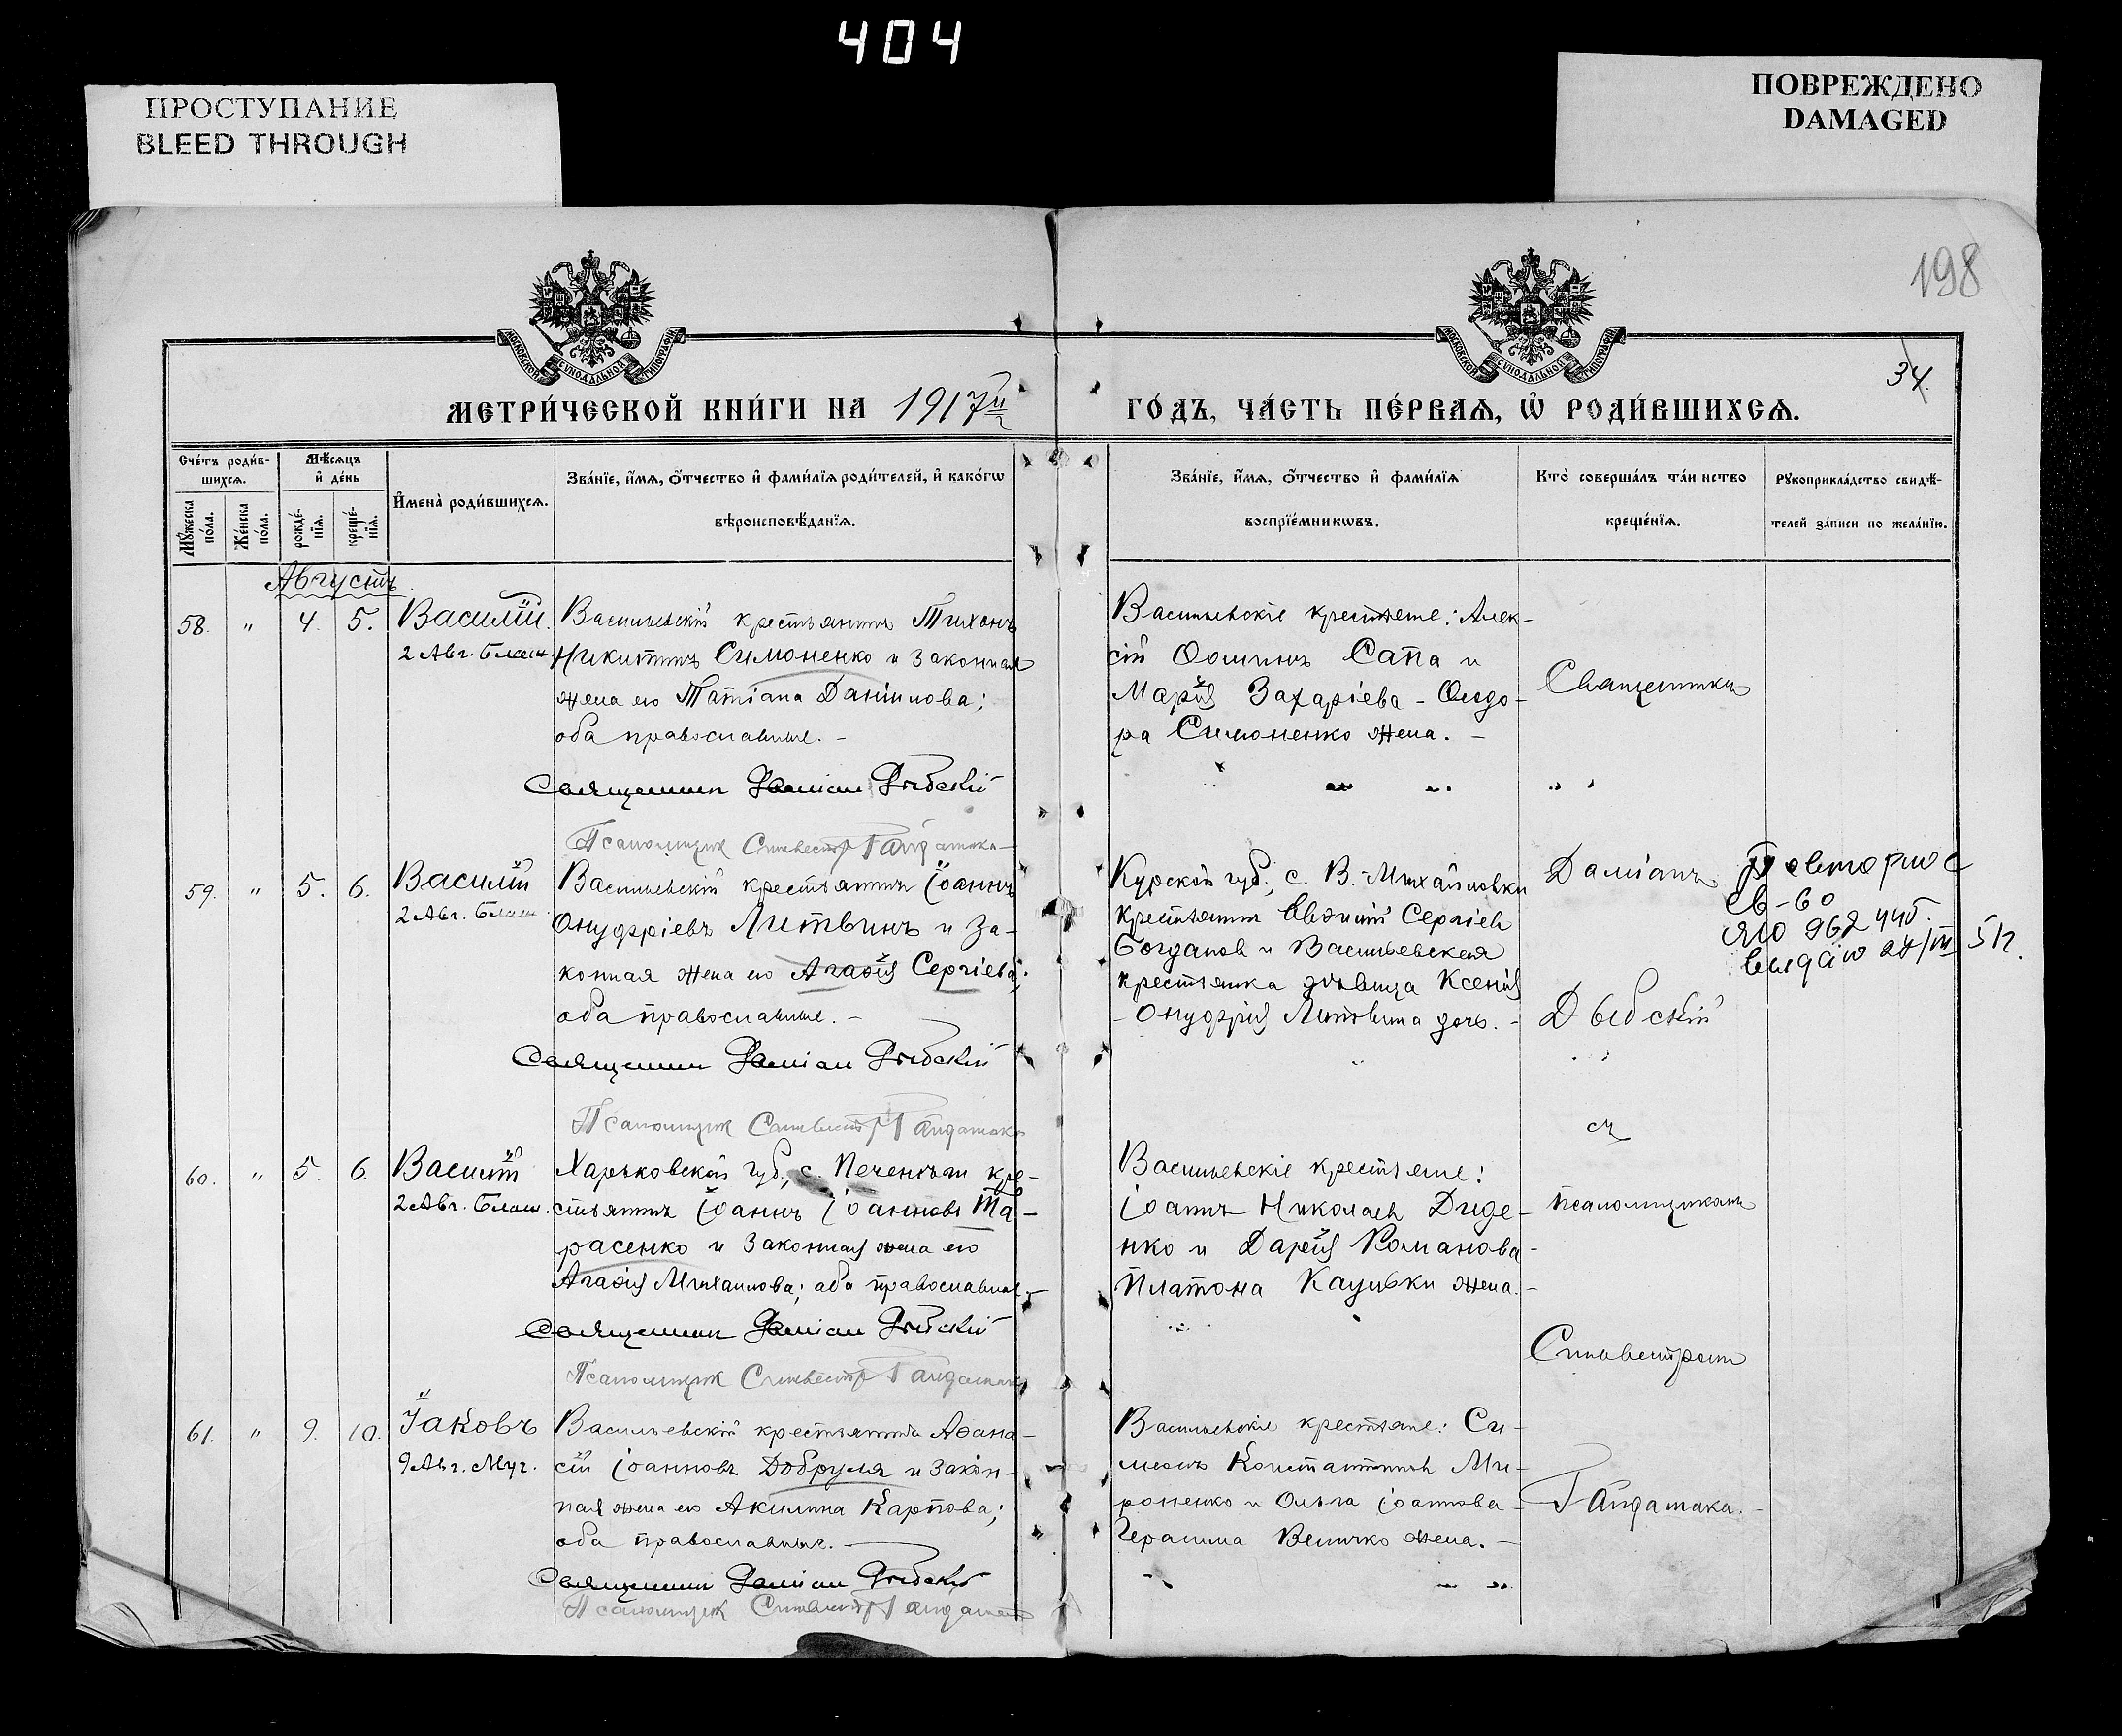 404
ПРОСТУПАНИЕ
BLEED THROUGH
ПОВРЕЖДЕНО
DAMAGED
198
МОСКОВСКОЙ СѴНОДАЛЬНОЙ ТИПОГРАФІИ
МОСКОВСКОЙ СѴНОДАЛЬНОЙ ТИПОГРАФІИ
34.
МЕТРИ́ЧЕСКОЙ КНИ́ГИ НА 1917й
ГО́ДЪ, ЧА́СТЬ ПЕ́РВАѦ, Ѡ҆ РОДИ́ВШИХСѦ.
Сче́тъ роди́в-
шихсѧ.
Мꙋ́жеска по́ла.
Же́нска по́ла.
Мѣ́сѧцъ
и҆ де́нь
рожде́-
нїѧ.
креще́-
нїѧ.
И҆мена̀ роди́вшихсѧ.
Зва́нїе, и҆́мѧ, ѻ҆́тчество и҆ фами́лїѧ роди́телей, и҆ како́гѡ
вѣроисповѣ́данїѧ.
Зва́нїе, и҆́мѧ, ѻ҆́тчество и҆ фами́лїѧ
воспрїе́мникѡвъ.
Кто̀ соверша́лъ та́инство
креще́нїѧ.
Рꙋкоприкла́дство свидѣ́-
телей за́писи по жела́нїю.
Августъ
58. " 4. 5. Василій.
2 Авг. Блаж.
Васильевскій крестьянинъ Тихонъ
Никитинъ Симоненко и законная
жена его Татіана Даніилова;
оба православные. –
Священник Даміан Дыбскій
Псаломщик Сильвестр Гайдамака
Васильевскіе крестьяне: Алек-
сій Ѳоминъ Сапа и
Марія Захаріева – Ѳеодо-
ра Симоненко жена. –
Священникъ
59. " 5. 6. Василій
2 Авг. Блаж.
Васильевскій крестьянинъ Іоаннъ
Онуфріевъ Литвинъ и за-
конная жена его Агаѳія Сергіева;
оба православные. –
Священник Даміан Дыбскій
Псаломщик Сильвестр Гайдамака
Курской губ., с. В.-Михайловки
крестьянин Евѳимій Сергіев
Богданов и Васильевская
крестьянка дѣвица Ксенія
– Онуфрія Литвина дочь. –
Даміанъ
Дыбскій
Повторное
св-во
ЯЮ 962445.
выдано 24/III 51г.
съ
60. " 5. 6. Василій
2 Авг. Блаж.
Харьковской губ., с. Печенѣги кре-
стьянинъ Іоаннъ Іоанновъ Та-
расенко и законная жена его
Агаѳія Михаилова; оба православные. –
Священник Даміан Дыбскій
Псаломщик Сильвестр Гайдамака
Васильевскіе крестьяне:
Іоаннъ Николаев Диде-
нко и Дарія Романова –
Платона Кацывки жена. –
псаломщикомъ
Сильвестромъ
61. " 9. 10. Іаковъ
9 Авг. Муч.
Васильевскій крестьянинъ Аѳана-
сій Іоанновъ Добруля и закон-
ная жена его Акилина Карпова;
оба православные. –
Священник Даміан Дыбскій
Псаломщик Сильвестр Гайдамака
Васильевскіе крестьяне: Си-
меонъ Константинов Ми-
роненко и Ольга Іоаннова –
Герасима Величко жена. –
Гайдамака. –